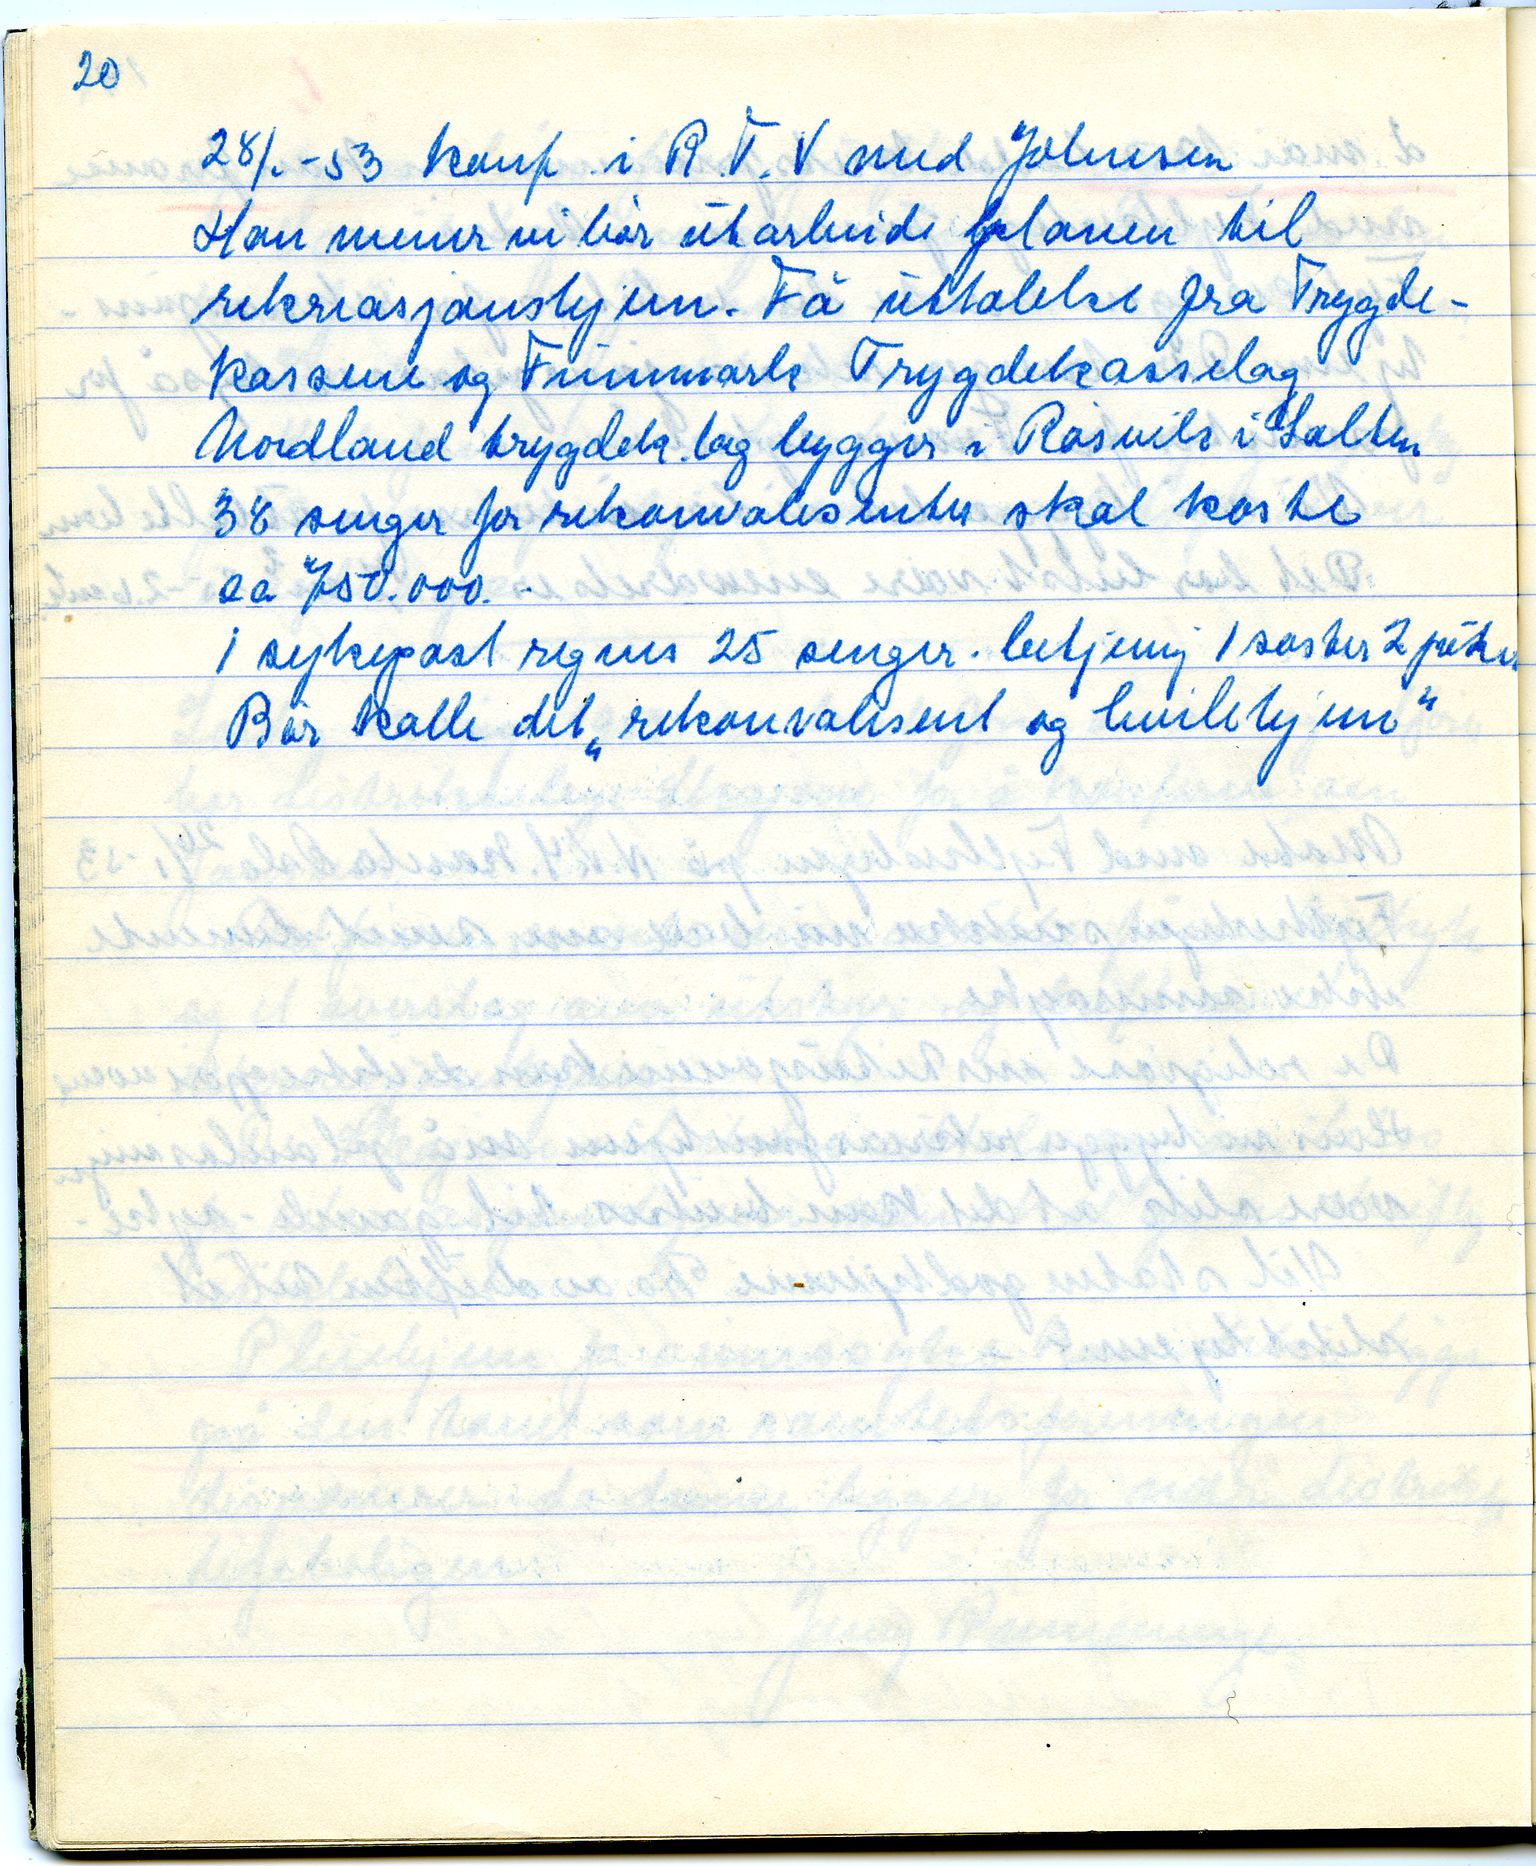 20
28/1-53 Konf. i R.T.V med Johnsen
Han mener vi bør utarbeide planen til
rekreasjonshjem. Få uttalelse fra Trygde-
Kassene og Finnmark Trygdekasselag
Nordland trygdek.lag bygger i Røsvik i Salten
38 senger for rekonvalesenter skal koste
ca 750.000.
1 sykepost regnes 25 senger. betjening 1 søster 2 piker
Bør kalle det „rekonvalesent og hvilehjem"